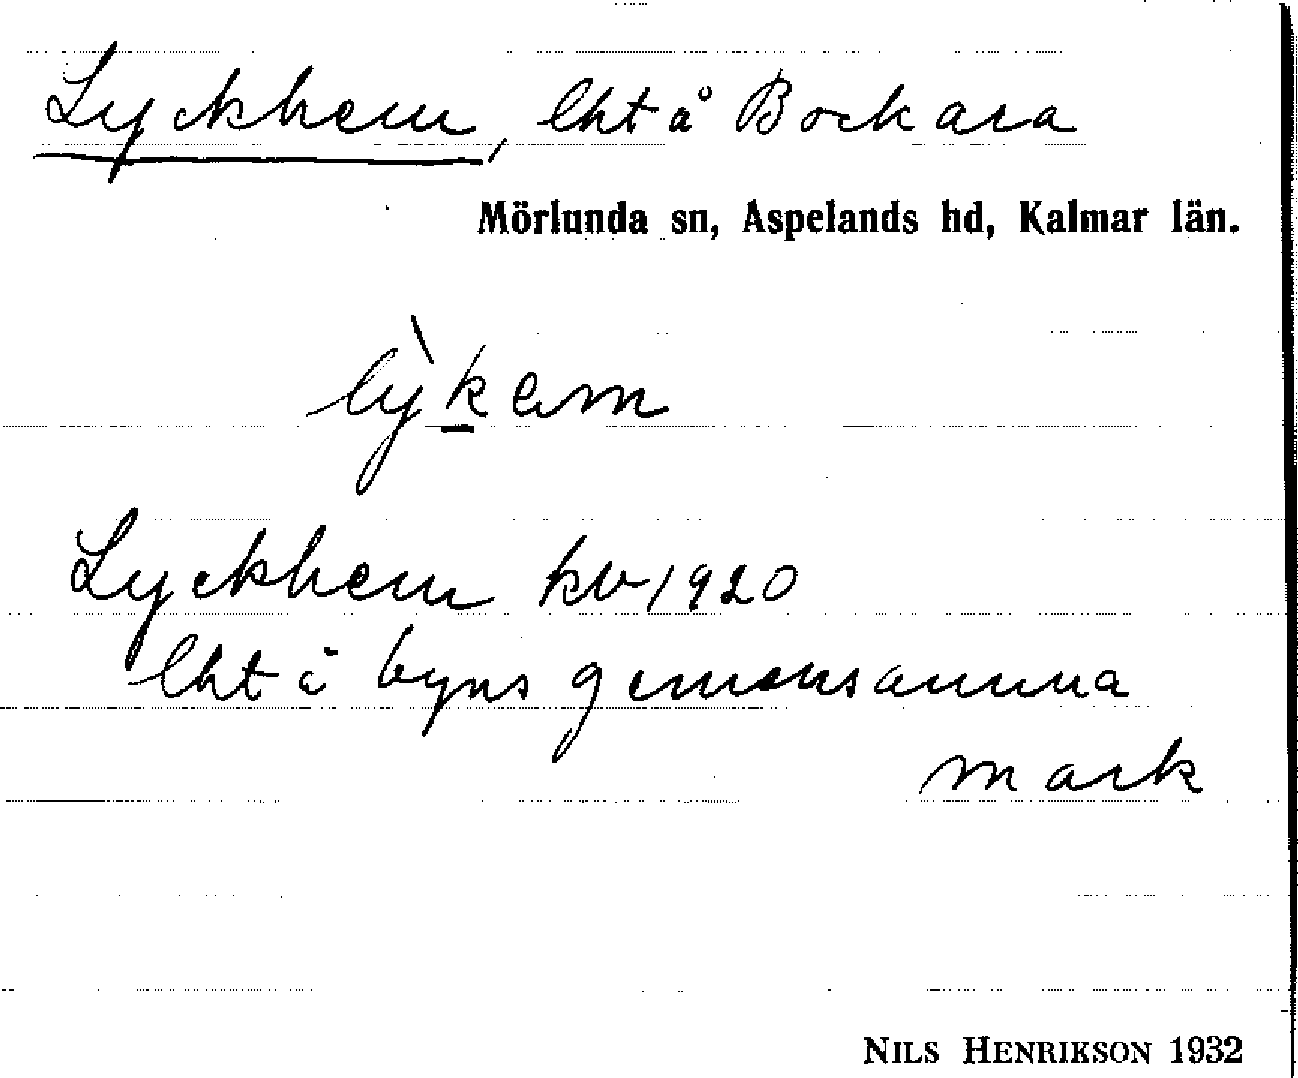 Lyckhem, lht å Bockara
Mörlunda sn, Aspelands hd, Kalmar län.
lỳkem
Lyckhem kb 1920
lht å byns gemensamma
mark
NILS HENRIKSON 1932